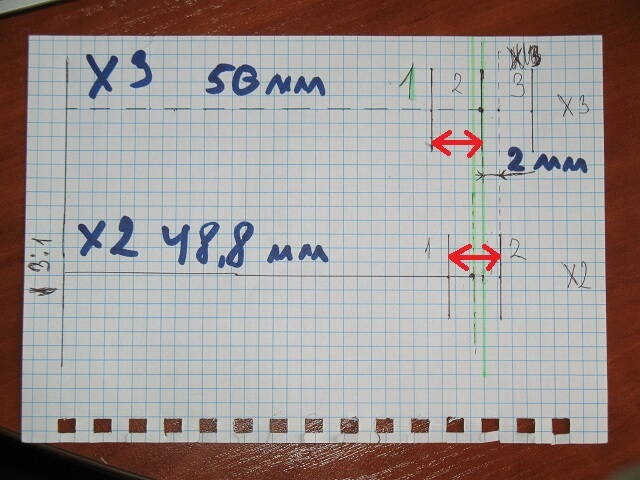 X3 50 мм 1 2 3 X3
2 мм
X2 48,8 мм 1 2 X2
3:1